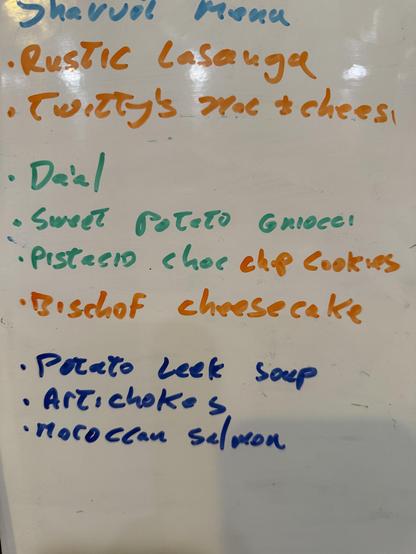 Shavuot Menu
· Rustic Lasauga
· Twitty's mac + cheese
· Da'al
· Sweet Potato Gniocci
· Pistacio choc chip Cookies
· Bischof cheesecake
· Potato Leek Soup
· Artichokes
· Moroccan Salmon